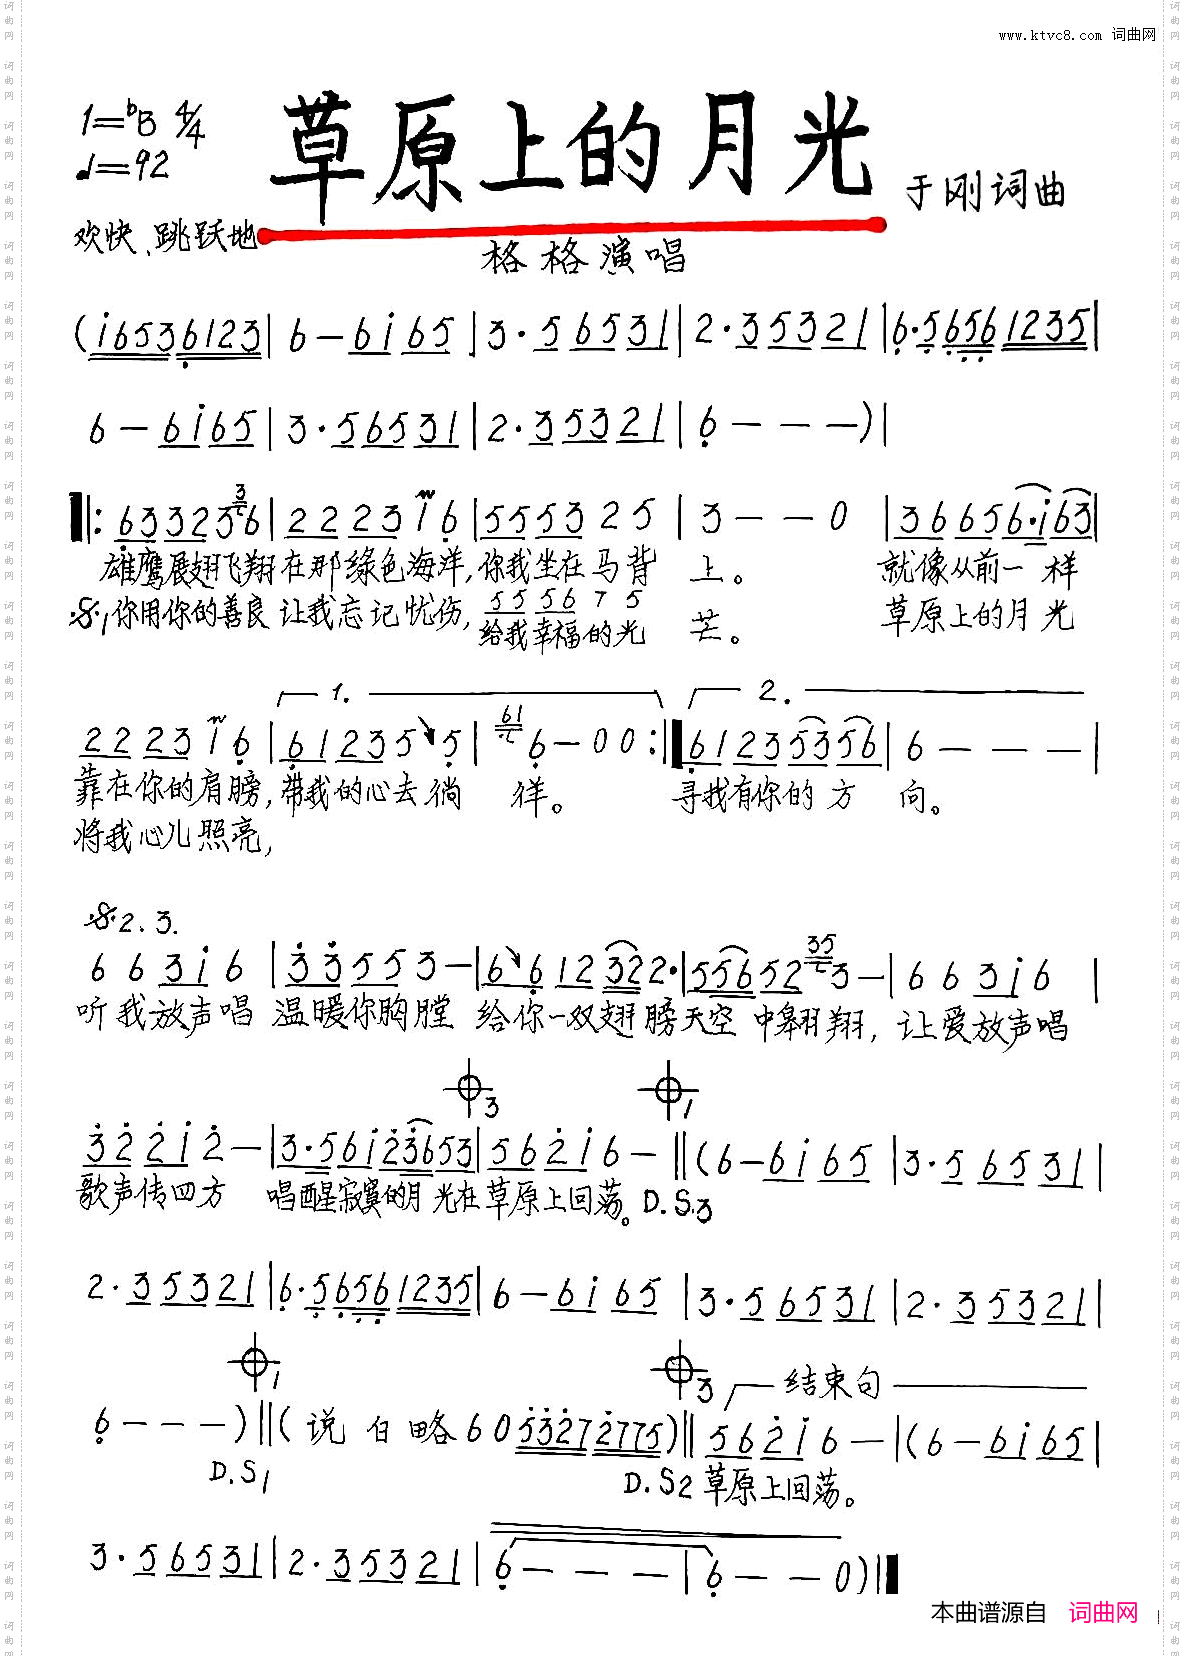 www.ktvc8.com 词曲网
1=♭B 4/4
草原上的月光
♩=92
于刚词曲
欢快、跳跃地
格格演唱
(i6536123|6-6i65|3·56531|2·35321|6·56561235|
6-6i65|3·56531|2·35321|6---)|
‖:63323 3 6|2223i6|555325|3--0|36656·i63|
雄鹰展翅飞翔在那绿色海洋,你我坐在马背上。就像从前一样
𝄋1你用你的善良让我忘记忧伤,
5 5 5 6 7 5
给我幸福的光芒。草原上的月光
1. 2.
2223i6|612355|61 6-00:‖61235356|6---|
靠在你的肩膀,带我的心去徜徉。寻找有你的方向。
将我心儿照亮,
𝄋2.3.
663i6|33553-|6612322·|5565235 3-|663i6|
听我放声唱 温暖你胸膛 给你一双翅膀天空中翱翔,让爱放声唱
𝄌3 𝄌1
322i2-|3·56i23653|562i6-‖(6-6i65|3·56531|
歌声传四方 唱醒寂寞的月光在草原上回荡。D.S.3
2·35321|6·56561235|6-6i65|3·56531|2·35321|
𝄌1 𝄌3 结束句
6---)‖(说白略6053272775)‖562i6-|(6-6i65|
D.S1 D.S2 草原上回荡。
3·56531|2·35321|6---|6--0)‖
本曲谱源自 词曲网